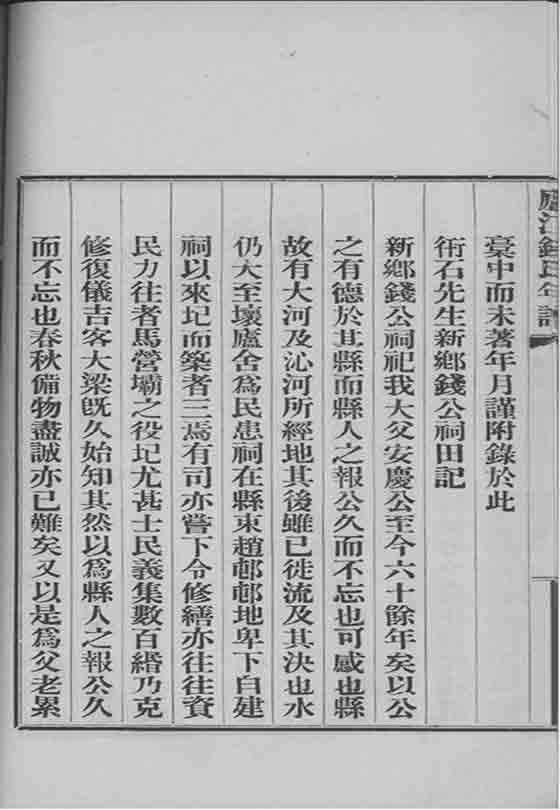 廬江錢氏年譜
稾中而未著年月謹附錄於此
衎石先生新鄉錢公祠田記
新鄉錢公祠祀我大父安慶公至今六十餘年矣以公
之有德於其縣而縣人之報公久而不忘也可感也縣
故有大河及沁河所經地其後雖已徙流及其決也水
仍大至壞廬舍爲民患祠在縣東趙邨邨地卑下自建
祠以來圮而築者三焉有司亦嘗下令修繕亦往往資
民力往者馬營壩之役圮尤甚士民義集數百緡乃克
修復儀吉客大梁旣久始知其然以爲縣人之報公久
而不忘也春秋備物盡誠亦已難矣又以是爲父老累